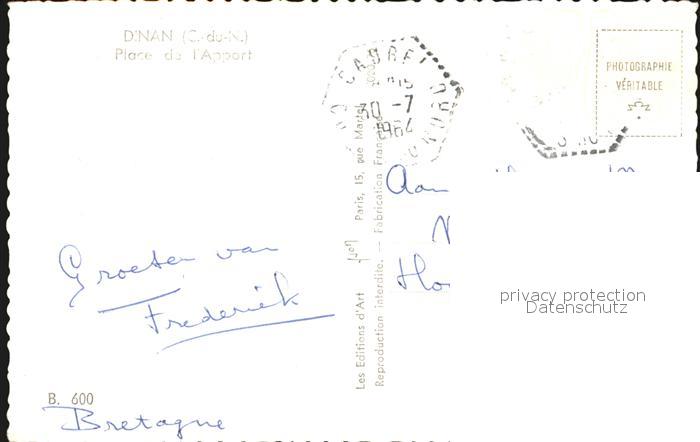 DINAN (C.-du-N.)
Place de l'Apport
30 -7
1964
PHOTOGRAPHIE
VÉRITABLE
Groeten van
Frederiek
Les Editions d'Art Paris, 15, rue Martel
Reproduction interdite. — Fabrication Française
Aan
privacy protection
Datenschutz
B. 600
Bretagne